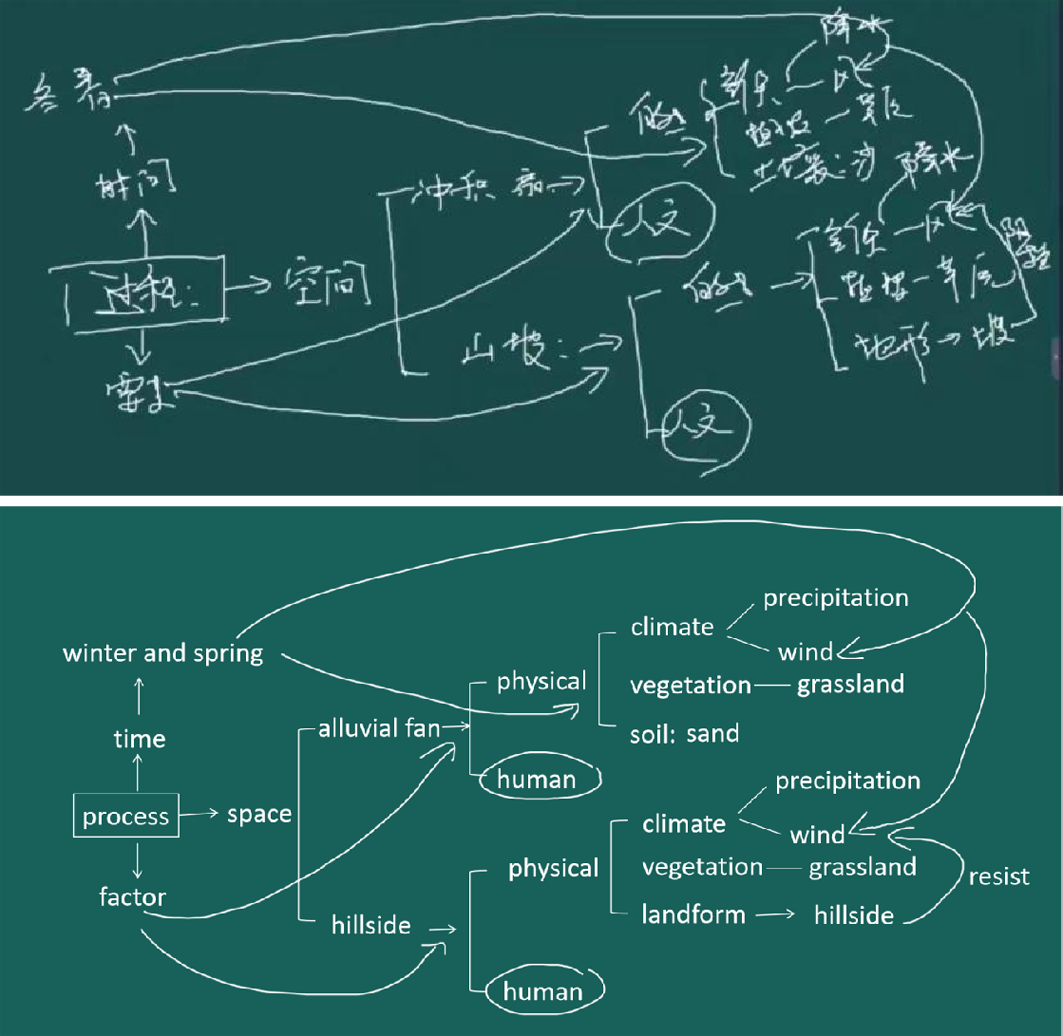 降水
冬春
气候
风
植被
草原
土壤:沙
时间
冲积扇
自然
人文
降水
过程:
空间
气候
风
阻挡
自然
植被
草原
山坡:
地形
坡
要素
人文
precipitation
climate
winter and spring
wind
physical
vegetation
grassland
alluvial fan
time
soil: sand
human
precipitation
process
space
climate
wind
physical
vegetation
grassland
resist
factor
landform
hillside
hillside
human